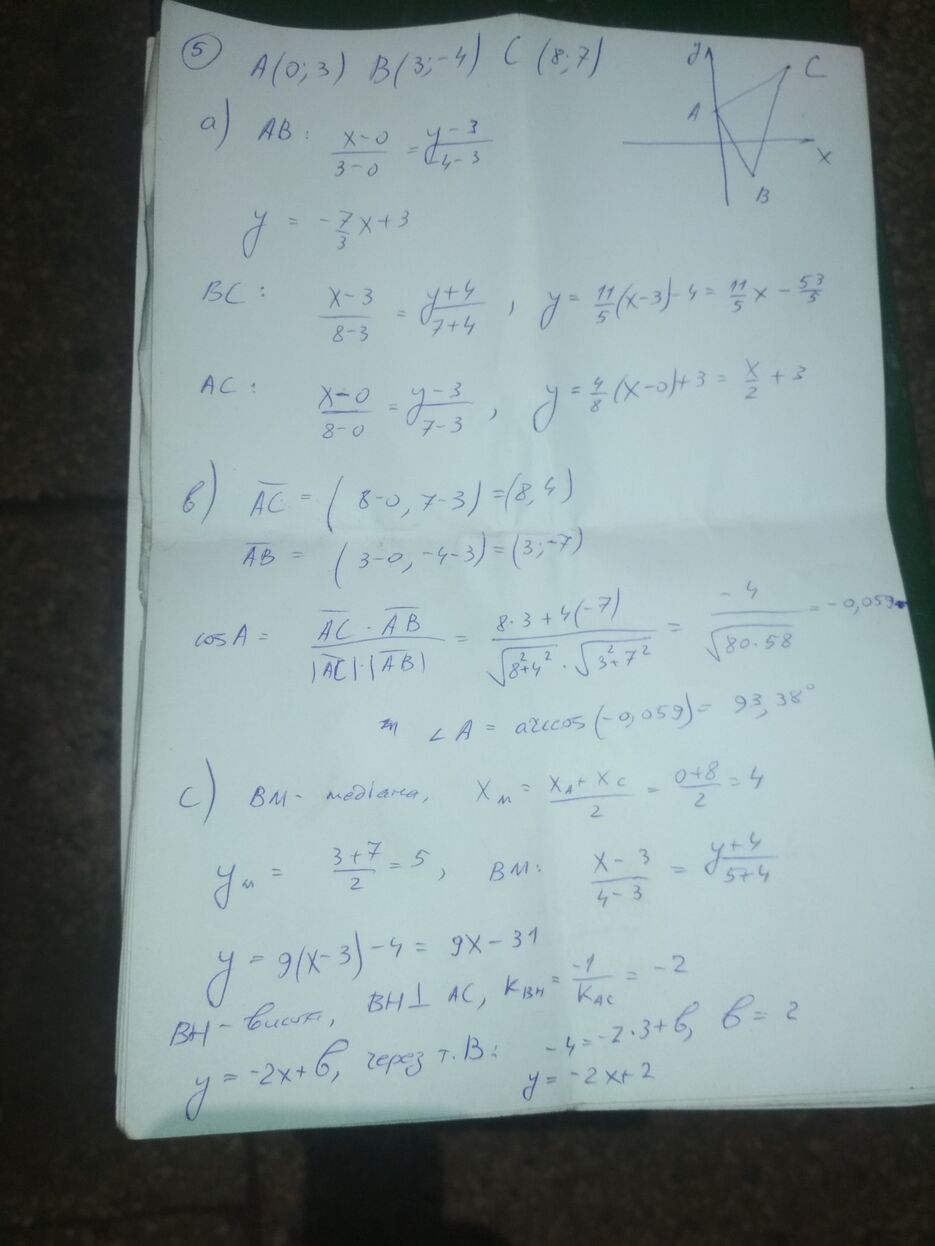 5 A(0;3) B(3;-4) C(8;7)
y C A x B
a) AB: (x-0)/(3-0) = (y-3)/(-4-3)
y = -7/3 x+3
BC: (x-3)/(8-3) = (y+4)/(7+4), y = 11/5(x-3)-4 = 11/5 x - 53/5
AC: (x-0)/(8-0) = (y-3)/(7-3), y = 4/8(x-0)+3 = x/2 + 3
в) AC = (8-0, 7-3) = (8, 4)
AB = (3-0, -4-3) = (3;-7)
cosA = (AC · AB)/(|AC|·|AB|) = (8·3+4(-7))/(√(8²+4²) · √(3²+7²)) = -4/√(80·58) = -0,059
∠A = arccos(-0,059) = 93,38°
c) BM - медіана, Xм = (XA + Xc)/2 = (0+8)/2 = 4
yм = (3+7)/2 = 5, BM: (x-3)/(4-3) = (y+4)/(5+4)
y = 9(x-3)-4 = 9x-31
BH - висота, BH⊥AC, KBH = -1/KAC = -2
y = -2x+в, через т.В: -4=-2·3+в, в=2
y = -2x+2